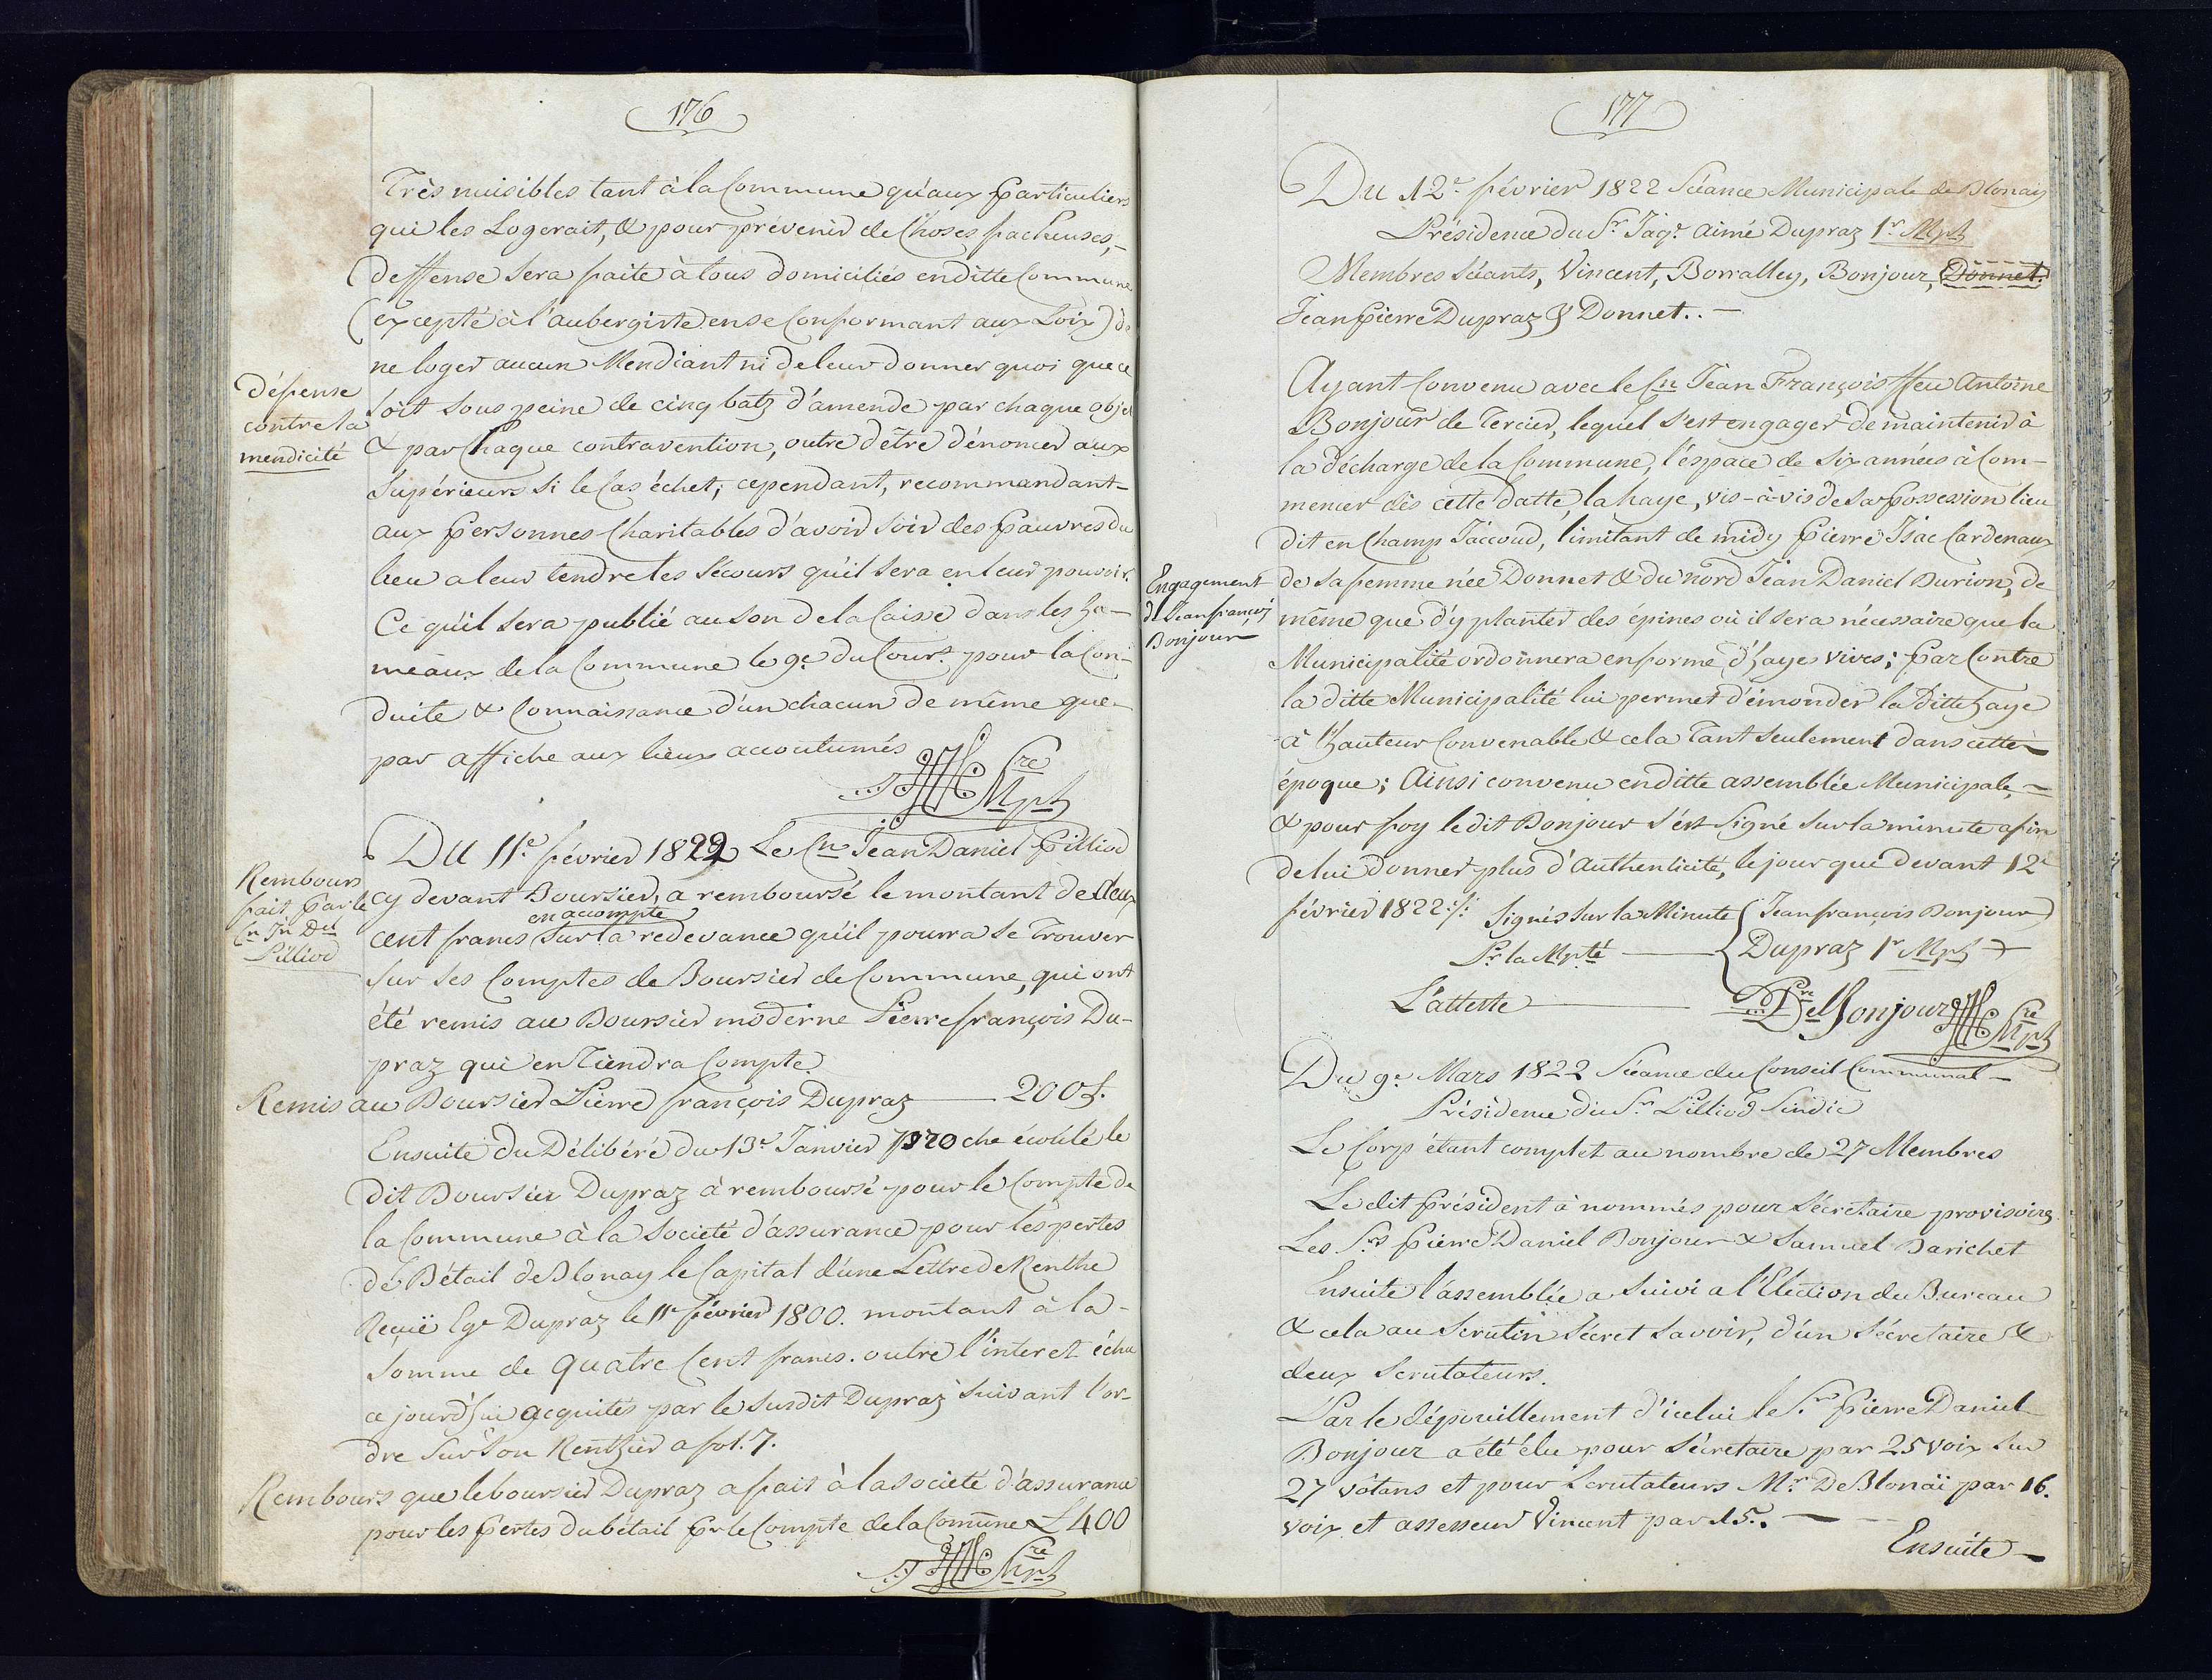 176
Très nuisibles tant à la Commune qu'aux particuliers
qui les Logerait, & pour prévenir de Choses facheuses,
deffense sera faite à tous domiciliés en ditte Commune
(excepté à l'aubergiste en se Conformant aux Loix) de
ne loger aucun Mendiant ni de leur donner quoi que ce
soit sous peine de cinq batz d'amende par chaque objet
& par Chaque contravention, outre d'être dénoncer aux
Supérieurs si le Cas échet; cependant, recommandant
aux personnes Charitables d'avoir soin des pauvres du
lieu a leur tendre les sécours qu'il sera en leur pouvoir.
Ce qu'il sera publié au son de la Caisse dans les ha-
meaux de la Commune le 9e. du Cour.t pour la Con-
duite & Connaissance d'un chacun de même que
par affiche aux lieux accoutumés
Cre
Mpl
défense
contre la
mendicité
Du 11e. février 1822 Le Cn Jean Daniel Pilliod
cy devant Boursier, a remboursé le montant de deux
en accompte
cent francs sur la redevance qu'il pourra se Trouver
sur ses Comptes de Boursier de Commune, qui ont
été remis au Boursier moderne Pierre françois Du-
praz qui en Tiendra Compte
Rembours
fait par le
Cn Jn Del
Pilliod
Remis au Boursier Pierre françois Dupraz 200 f.
Ensuite du Délibéré du 13e Janvier proche écoulé le
dit Boursier Dupraz à remboursé pour le Compte de
la Commune à la Société d'assurance pour les pertes
de Bétail de Blonay le Capital d'une Lettre de Renthe
Reçuë Ege Dupraz le 11e février 1800. montant à la
Somme de quatre Cent francs. outre l'interet échu
ce jourd'hui acquités par le susdit Dupraz suivant l'or-
dre sur son Renthier a fol. 7.
Rembours que le boursier Dupraz a fait à la société d'assurance
pour les pertes du bétail pr le Compte de la Comune L 400
Cre
Mpl
177
Du 12e février 1822 Séance Municipale de Blonay
Présidence du Sr. Jaqe. aimé Dupraz 1r Mpl
Membres Séants, Vincent, Borralley, Bonjour, Donnet.
Jean Pierre Dupraz & Donnet..
Ayant Convenu avec le Cn Jean François ffeu Antoine
Bonjour de Tercier, lequel s'est engager de maintenir à
la décharge de la Commune, l'espace de six années à Com-
mencer dès cette datte, la haye, vis-à-vis de sa possession lieu
dit en Champ Jaccoud, limitant de midy Pierre Isac Cardenaux
de sa femme née Donnet & du nord Jean Daniel Durion, de
même que d'y planter des épines où il sera nécessaire que la
Municipalité ordonnera en forme d'hayes vives; par Contre
la ditte Municipalité lui permet d'émonder la ditte haye
à hauteur Convenable & cela Tant seulement dans cette
époque; Ainsi convenu en ditte assemblée Municipale,
& pour foy le dit Bonjour s'est signé sur la minute afin
de lui donner plus d'Authenticité, le jour que devant 12e
février 1822:/: Signés sur la Minute Jean françois Bonjour
Pr la Mpté Dupraz 1r Mpl
L'atteste Pre Del Bonjour Cre
Mpl
Engagement
de Jean françois
Bonjour
Du 9e. Mars 1822 Séance du Conseil Communal
Présidence du Sr. Pilliod Sindic
Le Corp étant complet au nombre de 27 Membres
Le dit Président à nommés pour Sécretaire provisoires
Les Srs Pierre Daniel Bonjour & Samuel Barichet
Ensuite l'assemblée a suivi a l'Election du Bureau
& cela au Scrutin Sécret savoir, d'un Sécretaire &
deux Scrutateurs.
Par le dépouillement d'icelui le Sr. Pierre Daniel
Bonjour a été élu pour Sécretaire par 25 voix sur
27 vôtans et pour Scrutateurs Mr. De Blonaÿ par 16.
voix et assesseur Vincent par 15.
Ensuite